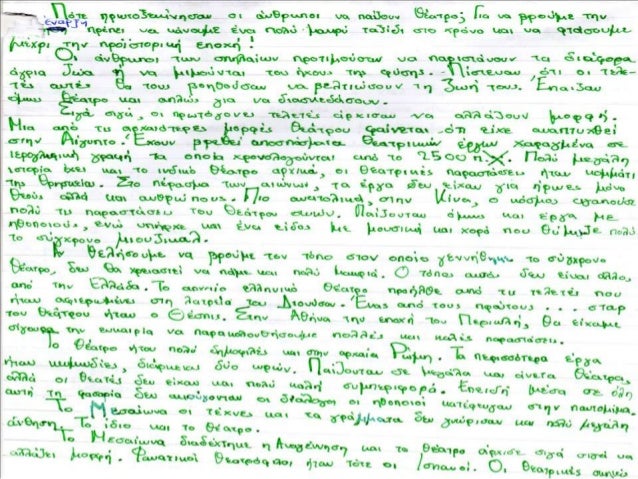 Πότε πρωτοξεκίνησαν οι άνθρωποι να παίζουν θέατρο; Για να βρούμε την
έναρξη πρέπει να κάνουμε ένα πολύ μακρύ ταξίδι στο χρόνο και να φτάσουμε
μέχρι την προϊστορική εποχή!
Οι άνθρωποι των σπηλαίων προτιμούσαν να παριστάνουν τα διάφορα
άγρια ζώα ή να μιμούνται του ήχους της φύσης. Πίστευαν ότι οι τελε-
τές αυτές θα τους βοηθούσαν να βελτιώσουν τη ζωή τους. Έπαιζαν
όμως θέατρο και απλώς για να διασκεδάσουν.
Σιγά σιγά, οι πρωτόγονες τελετές άρχισαν να αλλάζουν μορφή.
Μια από τις αρχαιότερες μορφές θεάτρου φαίνεται ότι είχε αναπτυχθεί
στην Αίγυπτο. Έχουν βρεθεί αποσπάσματα θεατρικών έργων χαραγμένα σε
ιερογλυφική γραφή τα οποία χρονολογούνται από το 2500 π.Χ. Πολύ μεγάλη
ιστορία έχει και το ινδικό θέατρο αρχικά, οι θεατρικές παραστάσεις ήταν κομμάτι
της θρησκείας. Στο πέρασμα των αιώνων, τα έργα δεν είχαν για ήρωες μόνο
θεούς αλλά και ανθρώπους. Πιο ανατολικά, στην Κίνα, ο κόσμος αγαπούσε
πολύ τις παραστάσεις του θεάτρου σκιών. Παίζονταν όμως και έργα με
ηθοποιούς, ενώ υπήρχε και ένα είδος με μουσική και χορό που θύμιζε πολύ
το σύγχρονο μιούζικαλ.
Αν θελήσουμε να βρούμε τον τόπο στον οποίο γεννήθηκε το σύγχρονο
θέατρο, δεν θα χρειαστεί να πάμε και πολύ μακριά. Ο τόπος αυτός δεν είναι άλλος
από την Ελλάδα. Το αρχαίο ελληνικό θέατρο προήλθε από τις τελετές που
ήταν αφιερωμένες στη λατρεία του Διονύσου. Ένας από τους πρώτους... σταρ
του θεάτρου ήταν ο Θέσπις. Στην Αθήνα την εποχή του Περικλή, θα είχαμε
σίγουρα την ευκαιρία να παρακολουθήσουμε πολλές και καλές παραστάσεις.
Το θέατρο ήταν πολύ δημοφιλές και στην αρχαία Ρώμη. Τα περισσότερα έργα
ήταν κωμωδίες, διάρκειας δύο ωρών. Παίζονταν σε μεγάλα και άνετα θέατρα,
αλλά οι θεατές δεν είχαν και πολύ καλή συμπεριφορά. Επειδή μέσα σε όλη
αυτή τη φασαρία δεν ακούγονταν οι διάλογοι οι ηθοποιοί κατέφυγαν στην παντομίμα.
Το Μεσαίωνα οι τέχνες και τα γράμματα δεν γνώρισαν και πολύ μεγάλη
άνθηση. Το ίδιο και το θέατρο.
Το Μεσαίωνα διαδέχτηκε η Αναγέννηση και το θέατρο άρχισε σιγά σιγά να
αλλάζει μορφή. Φανατικοί θεατρόφιλοι ήταν τότε οι Ισπανοί. Οι θεατρικές σκηνές